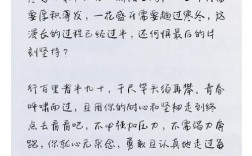 要厚积薄发，一花盛开需要熬过寒冬，这
漫长的过程已经过半，还何惧最后的计
划坚持？
行百里者半九十，千尺竿头须再攀，青春
呼啸而过，且用你的耐心和坚韧走到终
点去看看吧，不必强加压力，不需竭力奔
跑，你就心无杂念，勇敢且认真地走过每